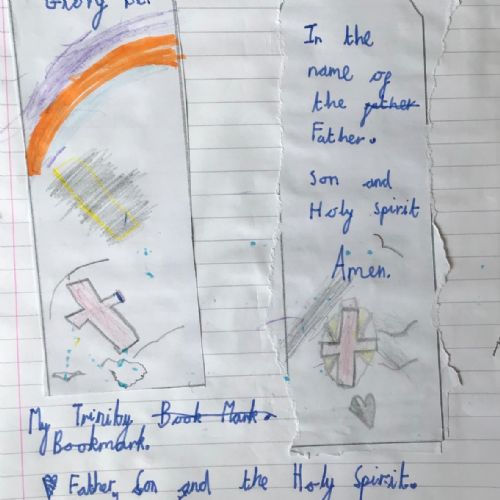 Glory be
In the
name of
the father
Father.
Son and
Holy Spirit
Amen.
My Trinity Book Mark.
Bookmark.
Father, Son and the Holy Spirit.